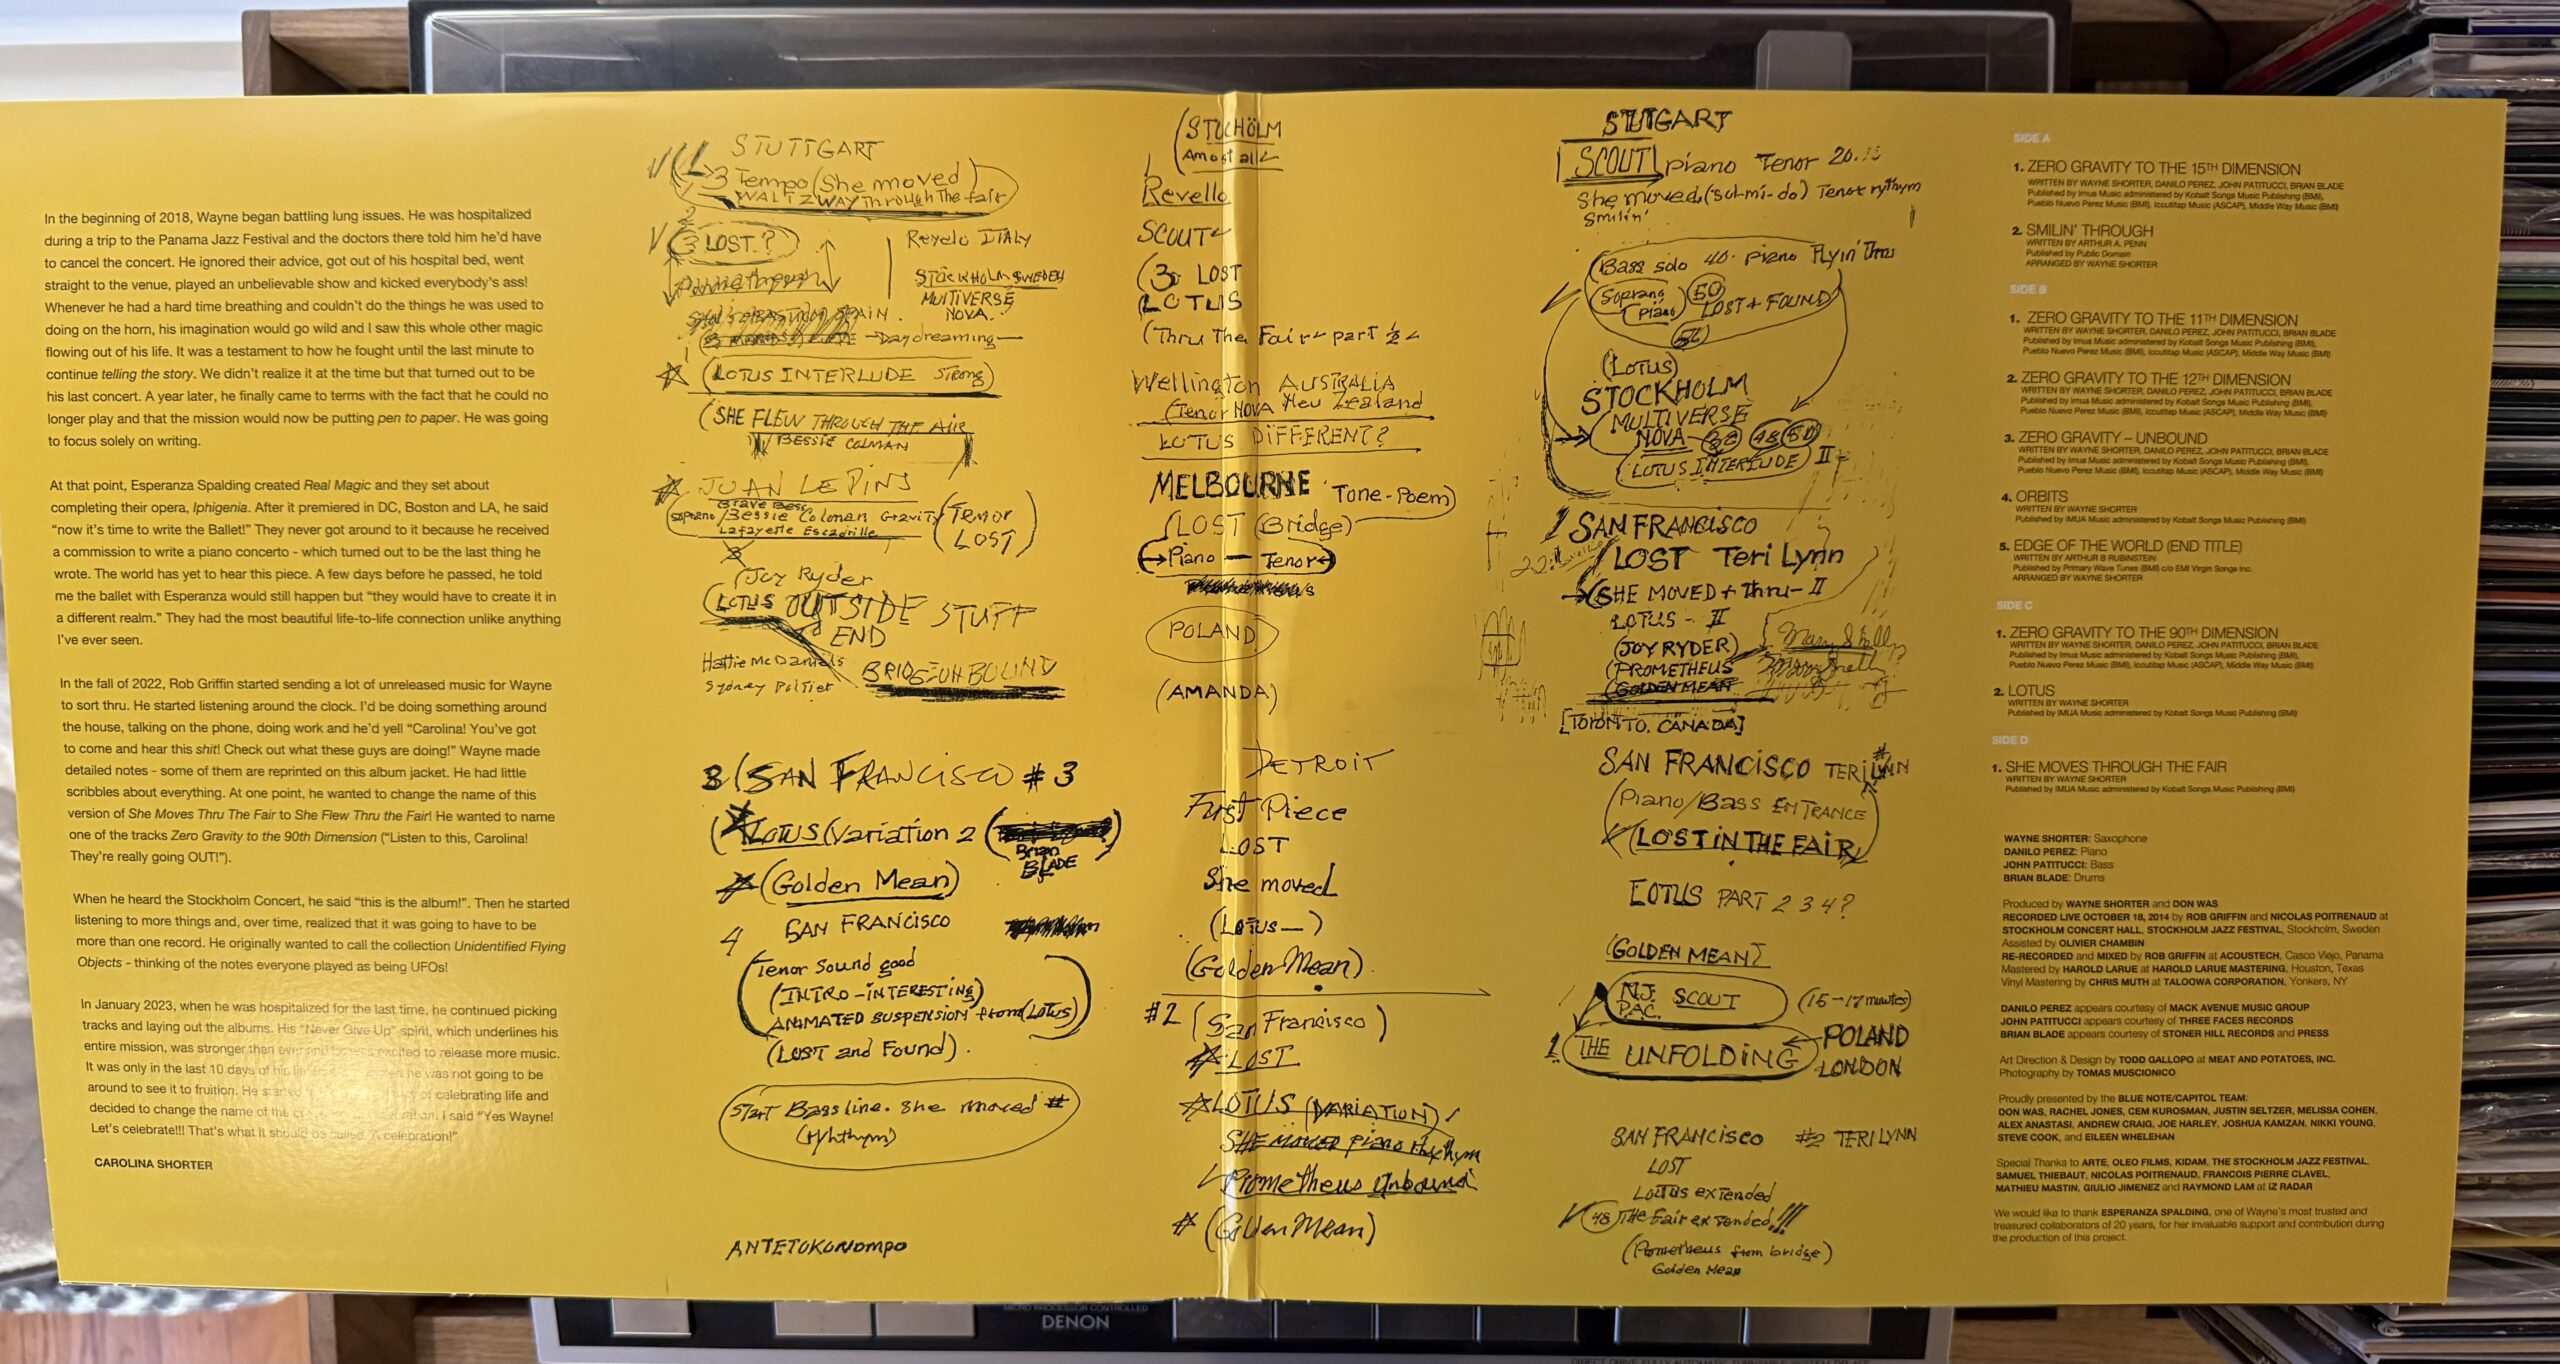 In the beginning of 2018, Wayne began battling lung issues. He was hospitalized
during a trip to the Panama Jazz Festival and the doctors there told him he'd have
to cancel the concert. He ignored their advice, got out of his hospital bed, went
straight to the venue, played an unbelievable show and kicked everybody's ass!
Whenever he had a hard time breathing and couldn't do the things he was used to
doing on the horn, his imagination would go wild and I saw this whole other magic
flowing out of his life. It was a testament to how he fought until the last minute to
continue telling the story. We didn't realize it at the time but that turned out to be
his last concert. A year later, he finally came to terms with the fact that he could no
longer play and that the mission would now be putting pen to paper. He was going
to focus solely on writing.
At that point, Esperanza Spalding created Real Magic and they set about
completing their opera, Iphigenia. After it premiered in DC, Boston and LA, he said
"now it's time to write the Ballet!" They never got around to it because he received
a commission to write a piano concerto - which turned out to be the last thing he
wrote. The world has yet to hear this piece. A few days before he passed, he told
me the ballet with Esperanza would still happen but "they would have to create it in
a different realm." They had the most beautiful life-to-life connection unlike anything
I've ever seen.
In the fall of 2022, Rob Griffin started sending a lot of unreleased music for Wayne
to sort thru. He started listening around the clock. I'd be doing something around
the house, talking on the phone, doing work and he'd yell "Carolina! You've got
to come and hear this shit! Check out what these guys are doing!" Wayne made
detailed notes - some of them are reprinted on this album jacket. He had little
scribbles about everything. At one point, he wanted to change the name of this
version of She Moves Thru The Fair to She Flew Thru the Fair! He wanted to name
one of the tracks Zero Gravity to the 90th Dimension ("Listen to this, Carolina!
They're really going OUT!").
When he heard the Stockholm Concert, he said "this is the album!". Then he started
listening to more things and, over time, realized that it was going to have to be
more than one record. He originally wanted to call the collection Unidentified Flying
Objects - thinking of the notes everyone played as being UFOs!
In January 2023, when he was hospitalized for the last time, he continued picking
tracks and laying out the albums. His "Never Give Up" spirit, which underlines his
entire mission, was stronger than ever and excited to release more music.
It was only in the last 10 days of his he was not going to be
around to see it to fruition. He started of celebrating life and
decided to change the name of the I said "Yes Wayne!
Let's celebrate!!! That's what it should be called. A celebration!"
CAROLINA SHORTER
STUTTGART
3 Tempo (She moved)
WALTZ WAY through the fair
2
3 LOST?
Revelo ITALY
STOCKHOLM SWEDEN
MULTIVERSE
NOVA.
SPAIN
Daydreaming
(LOTUS INTERLUDE Strong)
(SHE FLEW THROUGH THE AIR
BESSIE COLMAN
JUAN LE PINS
Brave Bess
Soprano/Bessie Colman Gravity
Lafayette Escadrille
(TENOR
LOST)
(Joy Ryder
(LOTUS OUTSIDE STUFF
END
Hattie McDaniels
Sydney Poltier
BRIDGE UNBOUND
3 (SAN FRANCISCO #3
(LOTUS (Variation 2
Brian
BLADE
(Golden Mean)
4 SAN FRANCISCO
Tenor Sound good
(INTRO-INTERESTING)
ANIMATED SUSPENSION from (Lotus)
(LOST and Found).
START Bass line. She moved #
(ryhthym)
ANTETOKONOMPO
(STOCHÖLM
Amost all
Revello
SCOUT
(3 LOST
LOTUS
(Thru The Fair part ½
Wellington AUSTRALIA
(Tenor NOVA New Zealand
LOTUS DIFFERENT?
MELBOURNE Tone-Poem)
LOST (Bridge)
Piano — Tenor
POLAND
(AMANDA)
DETROIT
First Piece
LOST
She moved
(Lotus—)
(Golden Mean).
#2 (San Francisco)
LOST
LOTUS (VARIATION)
SHE MOVED piano rhythym
Prometheus Unbound
(Golden Mean)
STUTGART
SCOUT piano Tenor
She moved (sol-mi-do) Tenor rythym
Smilin'
(Bass solo 40. piano Flyin' Thru
(Soprano
Piano)
50
LOST + FOUND
56
(LOTUS)
STOCKHOLM
MULTIVERSE
NOVA 48 50
(LOTUS INTERLUDE) II
1 SAN FRANCISCO
LOST Teri Lynn
(SHE MOVED + Thru- II
LOTUS - II
(JOY RYDER)
(PROMETHEUS
(GOLDEN MEAN
[TORONTO. CANADA]
SAN FRANCISCO TERI LYNN
(Piano/Bass ENTRANCE
(LOST IN THE FAIR)
LOTUS PART 2 3 4?
(GOLDEN MEAN)
N.J. SCOUT
P.AC.
(15-17 minutes)
POLAND
1 (THE UNFOLDING)
LONDON
SAN FRANCISCO #2 TERI LYNN
LOST
Lotus extended
48 The Fair extended!!!
(Prometheus from bridge)
Golden Mean
SIDE A
1. ZERO GRAVITY TO THE 15TH DIMENSION
WRITTEN BY WAYNE SHORTER, DANILO PEREZ, JOHN PATITUCCI, BRIAN BLADE
Published by Imua Music administered by Kobalt Songs Music Publishing (BMI),
Pueblo Nuevo Perez Music (BMI), Iccutitap Music (ASCAP), Middle Way Music (BMI)
2. SMILIN' THROUGH
WRITTEN BY ARTHUR A. PENN
Published by Public Domain
ARRANGED BY WAYNE SHORTER
SIDE B
1. ZERO GRAVITY TO THE 11TH DIMENSION
WRITTEN BY WAYNE SHORTER, DANILO PEREZ, JOHN PATITUCCI, BRIAN BLADE
Published by Imua Music administered by Kobalt Songs Music Publishing (BMI),
Pueblo Nuevo Perez Music (BMI), Iccutitap Music (ASCAP), Middle Way Music (BMI)
2. ZERO GRAVITY TO THE 12TH DIMENSION
WRITTEN BY WAYNE SHORTER, DANILO PEREZ, JOHN PATITUCCI, BRIAN BLADE
Published by Imua Music administered by Kobalt Songs Music Publishing (BMI),
Pueblo Nuevo Perez Music (BMI), Iccutitap Music (ASCAP), Middle Way Music (BMI)
3. ZERO GRAVITY – UNBOUND
WRITTEN BY WAYNE SHORTER, DANILO PEREZ, JOHN PATITUCCI, BRIAN BLADE
Published by Imua Music administered by Kobalt Songs Music Publishing (BMI),
Pueblo Nuevo Perez Music (BMI), Iccutitap Music (ASCAP), Middle Way Music (BMI)
4. ORBITS
WRITTEN BY WAYNE SHORTER
Published by IMUA Music administered by Kobalt Songs Music Publishing (BMI)
5. EDGE OF THE WORLD (END TITLE)
WRITTEN BY ARTHUR B RUBINSTEIN
Published by Primary Wave Tunes (BMI) c/o EMI Virgin Songs Inc.
ARRANGED BY WAYNE SHORTER
SIDE C
1. ZERO GRAVITY TO THE 90TH DIMENSION
WRITTEN BY WAYNE SHORTER, DANILO PEREZ, JOHN PATITUCCI, BRIAN BLADE
Published by Imua Music administered by Kobalt Songs Music Publishing (BMI),
Pueblo Nuevo Perez Music (BMI), Iccutitap Music (ASCAP), Middle Way Music (BMI)
2. LOTUS
WRITTEN BY WAYNE SHORTER
Published by IMUA Music administered by Kobalt Songs Music Publishing (BMI)
SIDE D
1. SHE MOVES THROUGH THE FAIR
WRITTEN BY WAYNE SHORTER
Published by IMUA Music administered by Kobalt Songs Music Publishing (BMI)
WAYNE SHORTER: Saxophone
DANILO PEREZ: Piano
JOHN PATITUCCI: Bass
BRIAN BLADE: Drums
Produced by WAYNE SHORTER and DON WAS
RECORDED LIVE OCTOBER 18, 2014 by ROB GRIFFIN and NICOLAS POITRENAUD at
STOCKHOLM CONCERT HALL, STOCKHOLM JAZZ FESTIVAL, Stockholm, Sweden
Assisted by OLIVIER CHAMBIN
RE-RECORDED and MIXED by ROB GRIFFIN at ACOUSTECH, Casco Viejo, Panama
Mastered by HAROLD LARUE at HAROLD LARUE MASTERING, Houston, Texas
Vinyl Mastering by CHRIS MUTH at TALOOWA CORPORATION, Yonkers, NY
DANILO PEREZ appears courtesy of MACK AVENUE MUSIC GROUP
JOHN PATITUCCI appears courtesy of THREE FACES RECORDS
BRIAN BLADE appears courtesy of STONER HILL RECORDS and PRESS
Art Direction & Design by TODD GALLOPO at MEAT AND POTATOES, INC.
Photography by TOMAS MUSCIONICO
Proudly presented by the BLUE NOTE/CAPITOL TEAM:
DON WAS, RACHEL JONES, CEM KUROSMAN, JUSTIN SELTZER, MELISSA COHEN,
ALEX ANASTASI, ANDREW CRAIG, JOE HARLEY, JOSHUA KAMZAN, NIKKI YOUNG,
STEVE COOK, and EILEEN WHELEHAN
Special Thanks to ARTE, OLEO FILMS, KIDAM, THE STOCKHOLM JAZZ FESTIVAL,
SAMUEL THIEBAUT, NICOLAS POITRENAUD, FRANCOIS PIERRE CLAVEL,
MATHIEU MASTIN, GIULIO JIMENEZ and RAYMOND LAM at IZ RADAR
We would like to thank ESPERANZA SPALDING, one of Wayne's most trusted and
treasured collaborators of 20 years, for her invaluable support and contribution during
the production of this project.
MICRO PROCESSOR CONTROLLED
DENON